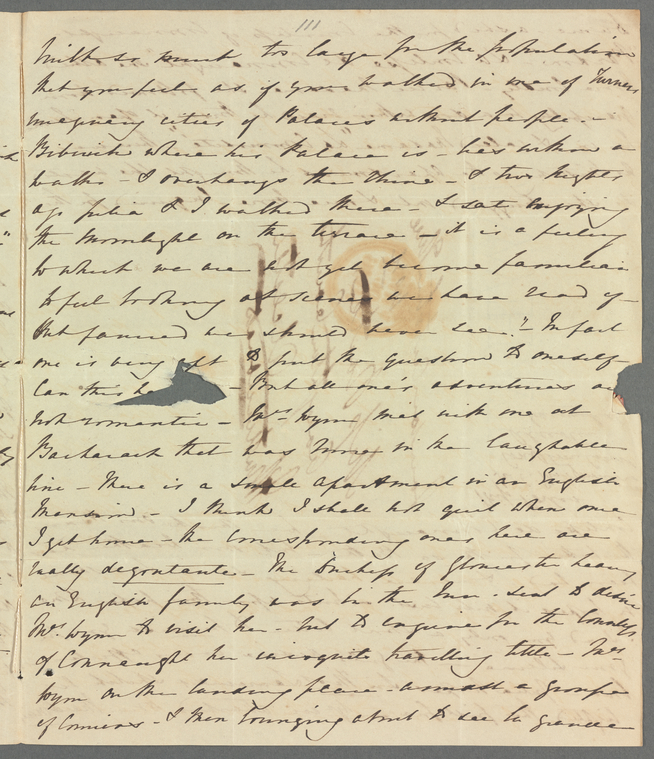 111
built so much too large for the population
that you feel as if you walked in one of Turners
imaginary cities of Palaces without people. -
where his Palace is - lies within a
walk - & overhangs the Rhine - & two nights
ago Julia & I walked there - & sat enjoying
the moonlight on the terrace - it is a feeling
to which we are not yet become familiar
to feel looking at scenes we have read of -
but fancied we should never see." In fact
one is very apt to put the question to oneself
Can this be - But all one's adventures are
not romantic - Mrs. Wynn met with one at
Bacharach that was more in the laughable
line - There is a single apartment in an English
Mansion - I think I shall not quit when once
I get home - the corresponding ones here are
really degoutante - The Duchess of Gloucester hearing
an English family was in the Inn - sent to desire
Mrs. Wynn to visit her - but to enquire for the Countess
of Connaught her incognito travelling title - Mrs.
Wynn on the landing place - amidst a groupe
of - & Men lounging about to see la grande